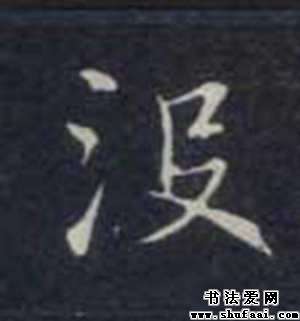 没
书法爱网
www.shufaai.com